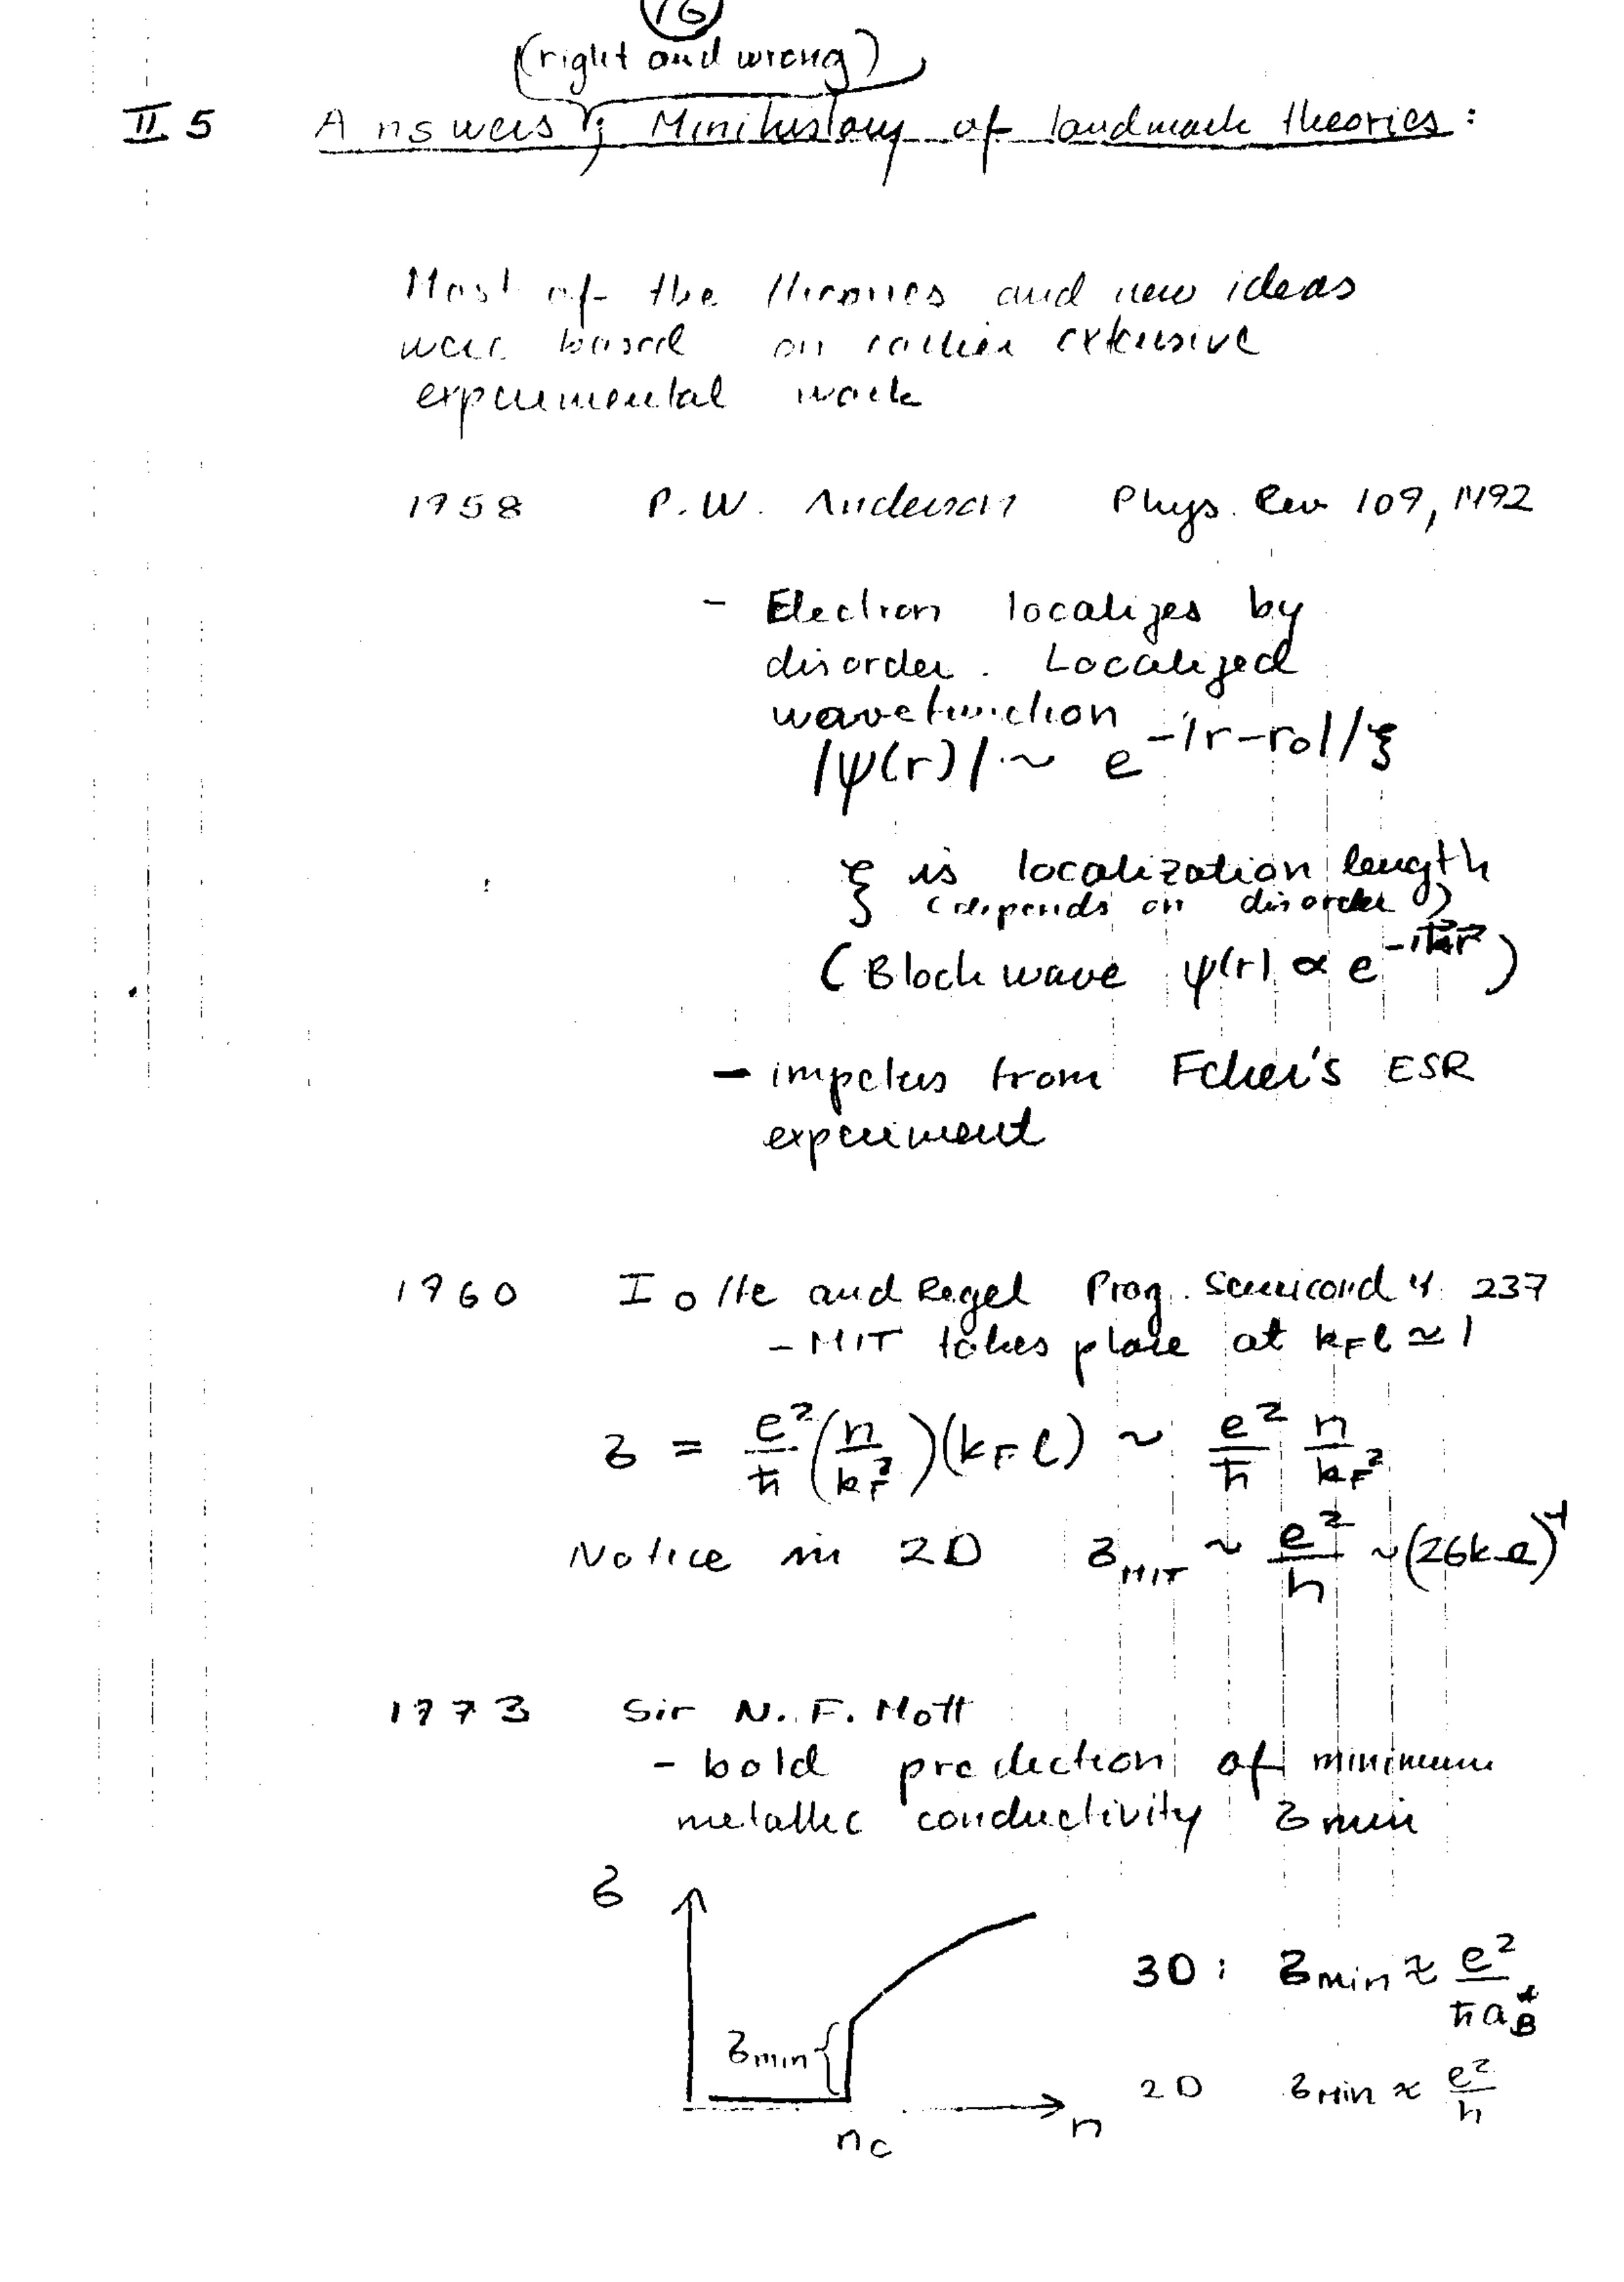 16
(right and wrong)
II 5 Answers; Minihistory of landmark theories:
Most of the theories and new ideas
were based on earlier extensive
experimental work
1958 P.W. Anderson Phys. Rev 109, 1492
- Electron localizes by
disorder. Localized
wavefunction
|ψ(r)| ~ e^{-|r-r₀|/ξ}
ξ is localization length
(depends on disorder)
(Bloch wave ψ(r) ∝ e^{-i\vec{k}\vec{r}})
- impetus from Feher's ESR
experiment
1960 Ioffe and Regel Prog. Semicond 4 237
- MIT takes place at k_F l ≃ 1
σ = e²/ħ (n/k_F²)(k_F l) ~ e²/ħ n/k_F²
Notice in 2D σ_MIT ~ e²/h ~ (26kΩ)⁻¹
1973 Sir N.F. Mott
- bold prediction of minimum
metallic conductivity σmin
σ
3D: σmin ≈ e²/ħa_B*
σmin
2D σmin ≈ e²/h
n
nc